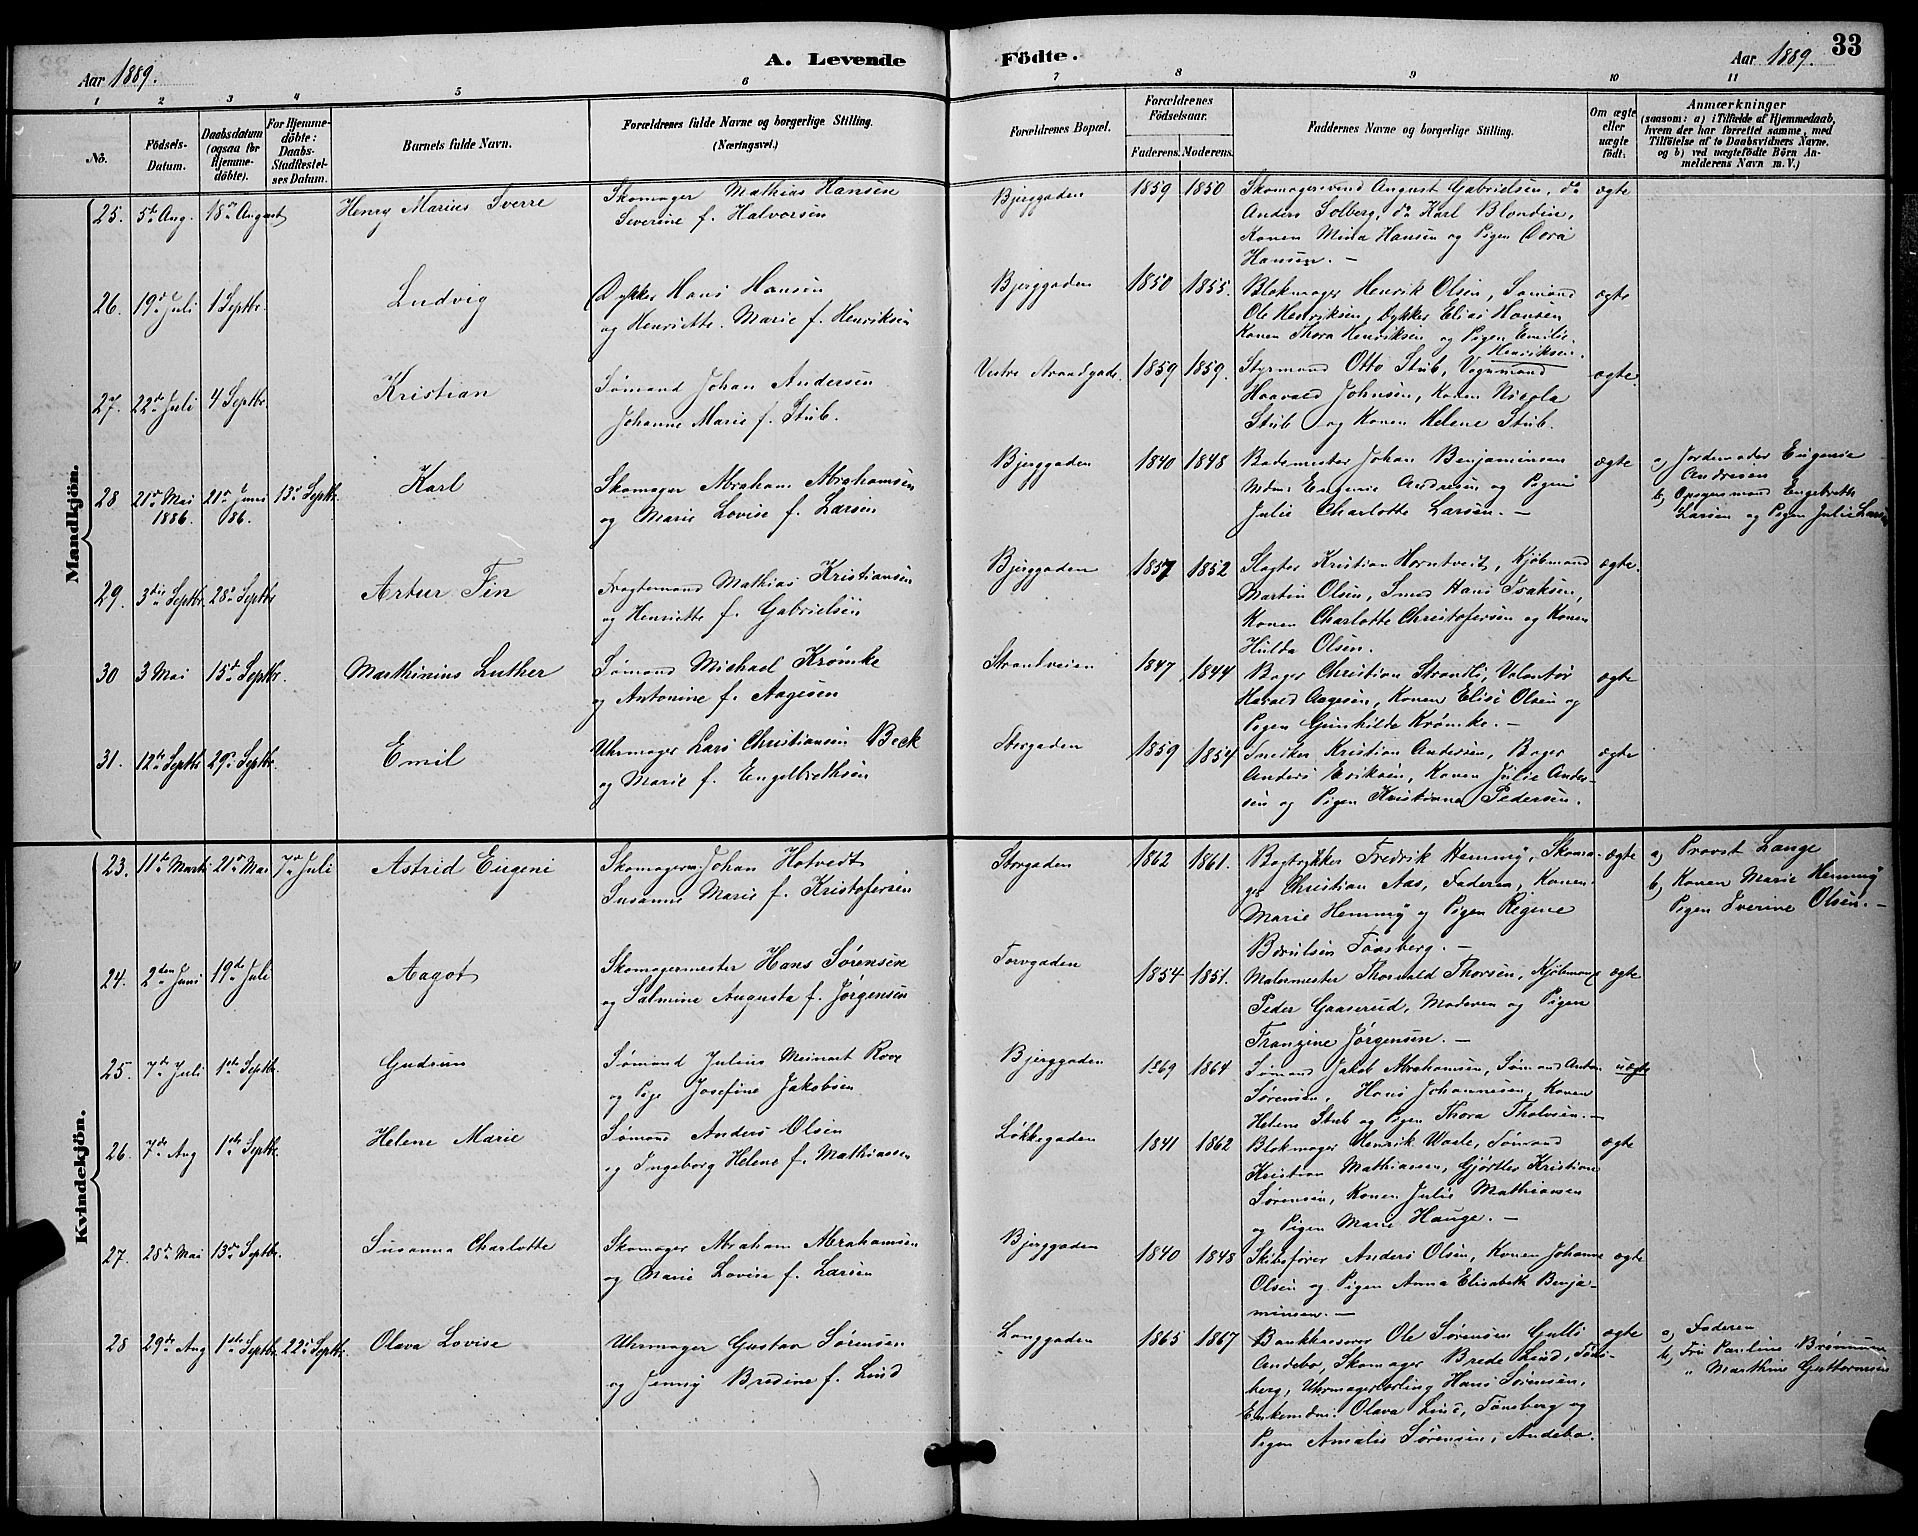 Aar 1889.
A. Levende
Födte.
Aar 1889.
33
1 2 3 4 5 6 7 8 9 10 11
No.
Födsels-
Datum.
Daabsdatum
(ogsaa for
Hjemme-
döbte).
For Hjemme-
döbte:
Daabs-
Stadfæstel-
ses Datum.
Barnets fulde Navn.
Forældrenes fulde Navne og borgerlige Stilling.
(Næringsvei.)
Forældrenes Bopæl.
Forældrenes
Födselsaar.
Faderens. Moderens.
Faddernes Navne og borgerlige Stilling.
Om ægte
eller
uægte
födt:
Anmærkninger
(saasom: a) i Tilfælde af Hjemmedaab,
hvem der har forrettet samme, med
Tilföielse af to Daabsvidners Navne.
og b) ved uægtefödte Börn An-
melderens Navn m. V.)
Mandkjön.
25. 5te Aug. 18de August Henry Marius Sverre
Skomager Mathias Hansen
Severine f. Halvorsen
Bjerggaden 1859 1850
Skomagersvend August Gabrielsen, do
Anders Solberg, do Karl Blondin,
Konen Mina Hansen og Pigen Dora
Hansen. —
ægte
26. 19de Juli 1 Septbr. Ludvig
Dykker Hans Hansen
og Henriette Marie f. Henriksen
Bjerggaden 1850 1855.
Blokmager Henrik Olsen, Sømand
Ole Henriksen, Dykker Elias Hansen
Konen Thora Henriksen og Pigen Emilie
Henriksen.
ægte
27. 22de Juli 4 Septbr. Kristian
Sømand Johan Andersen
Johanne Marie f. Stub.
Vestre Strandgade. 1859 1859.
Styrmand Otto Stub, Vognmand
Haavald Johnsen, Konen Nicola
Stub og Konen Helene Stub.
ægte.
28 21de Mai 1886. 21de Juni 86. 13de Septbr. Karl
Skomager Abraham Abrahamsen
og Marie Lovise f. Larsen
Bjerggaden 1840 1848
Bademester Johan Benjaminsen
Mdme Eugenie Andresen og Pigen
Julie Charlotte Larsen. —
ægte
a) Jordemoder Eugenie
Andresen
b) Opsynsmand Engebreth
Larsen og Pigen Julie Larsen
29. 3die Septbr. 28de Septbr Artur Fin
Fragtemand Mathias Kristiansen
og Henriette f. Gabrielsen
Bjerggaden 1857 1852
Slagter Kristian Horntveit, Kjøbmand
Martin Olsen, Smed Hans Isaksen,
Konen Charlotte Christofersen og Konen
Hulda Olsen.
ægte.
30 3 Mai 15de Septbr. Marthinius Luther
Sømand Michael Krømke
og Antonine f. Aagesen
Strandveien 1847 1844
Bager Christian Strandli, Volontør
Harald Aagesen, Konen Elise Olsen og
Pigen Gunhilda Krømke. —
ægte
31. 12te Septbr 29de Septbr. Emil
Uhrmager Lars Christiansen Beck
og Marie f. Engelbrethsen
Storgaden 1859 1854
Snedker Kristian Andersen, Bager
Anders Eriksen, Konen Julie Ander-
sen og Pigen Kristiane Pedersen.
ægte
Kvindekjön.
23. 11te Marts 21de Mai 7de Juli Astrid Eugeni
Skomagersv. Johan Hotvedt
Susanne Marie f. Kristofersen
Storgaden 1862 1861.
Bogtrykker Fredrik Hemmy, Skoma-
ger Christian Aas, Faderen, Konen
Marie Hemmy og Pigen Regine
Børulsen Tønsberg. —
ægte
a) Provst Lange
b) Konen Marie Hemmy
Pigen Iverine Olsen. —
24. 2den Juni 19de Juli Aagot
Skomagermester Hans Sørensen
og Palmine Augusta f. Jørgensen
Torvgaden 1854 1851.
Malermester Thorvald Thorsen, Kjøbmand
Peder Gaaserud, Moderen og Pigen
Franzine Jørgensen. —
ægte
25. 7de Juli 1ste Septbr. Gudrun
Sømand Julius Meinart Rove
og Pige Josefine Jakobsen
Bjerggaden 1869 1864
Sømand Jakob Abrahamsen, Sømand Anton
Sørensen, Hans Johannesen, Konen
Helene Stub og Pigen Thora Tholvsen. —
uægte
26. 7de Aug 1ste Septbr. Helene Marie
Sømand Anders Olsen
og Ingeborg Helene f. Mathiassen
Løkkegaden 1841 1862
Blokmager Henrik Waale, Sømand
Kristian Mathiasen, Gjørtler Kristian
Sørensen, Konen Julie Mathiasen
og Pigen Marie Hauge. —
ægte
27. 28de Mai 13de Septbr. Susanna Charlotte
Skomager Abraham Abrahamsen
og Marie Lovise f. Larsen
Bjerggaden 1840 1848
Skibsfører Anders Olsen, Konen Johanne
Olsen og Pigen Anna Elisabeth Benja-
minsen. —
ægte
28 29de Aug 1ste Septbr. 22de Septbr. Olava Lovise
Uhrmager Gustav Sørensen
og Jenny Bredine f. Lind
Langgaden 1865 1867
Bankkasserer Ole Sørensen Gulli
Andebo, Skomager Brede Lind, Tøns-
berg, Uhrmagerlærling Hans Sørensen,
Enkemdm. Olava Lind, Tønsberg og
Pigen Amalie Sørensen, Andebo.
ægte
a) Faderen
b) Fru Pauline Brømum
" Marthine Guttormsen